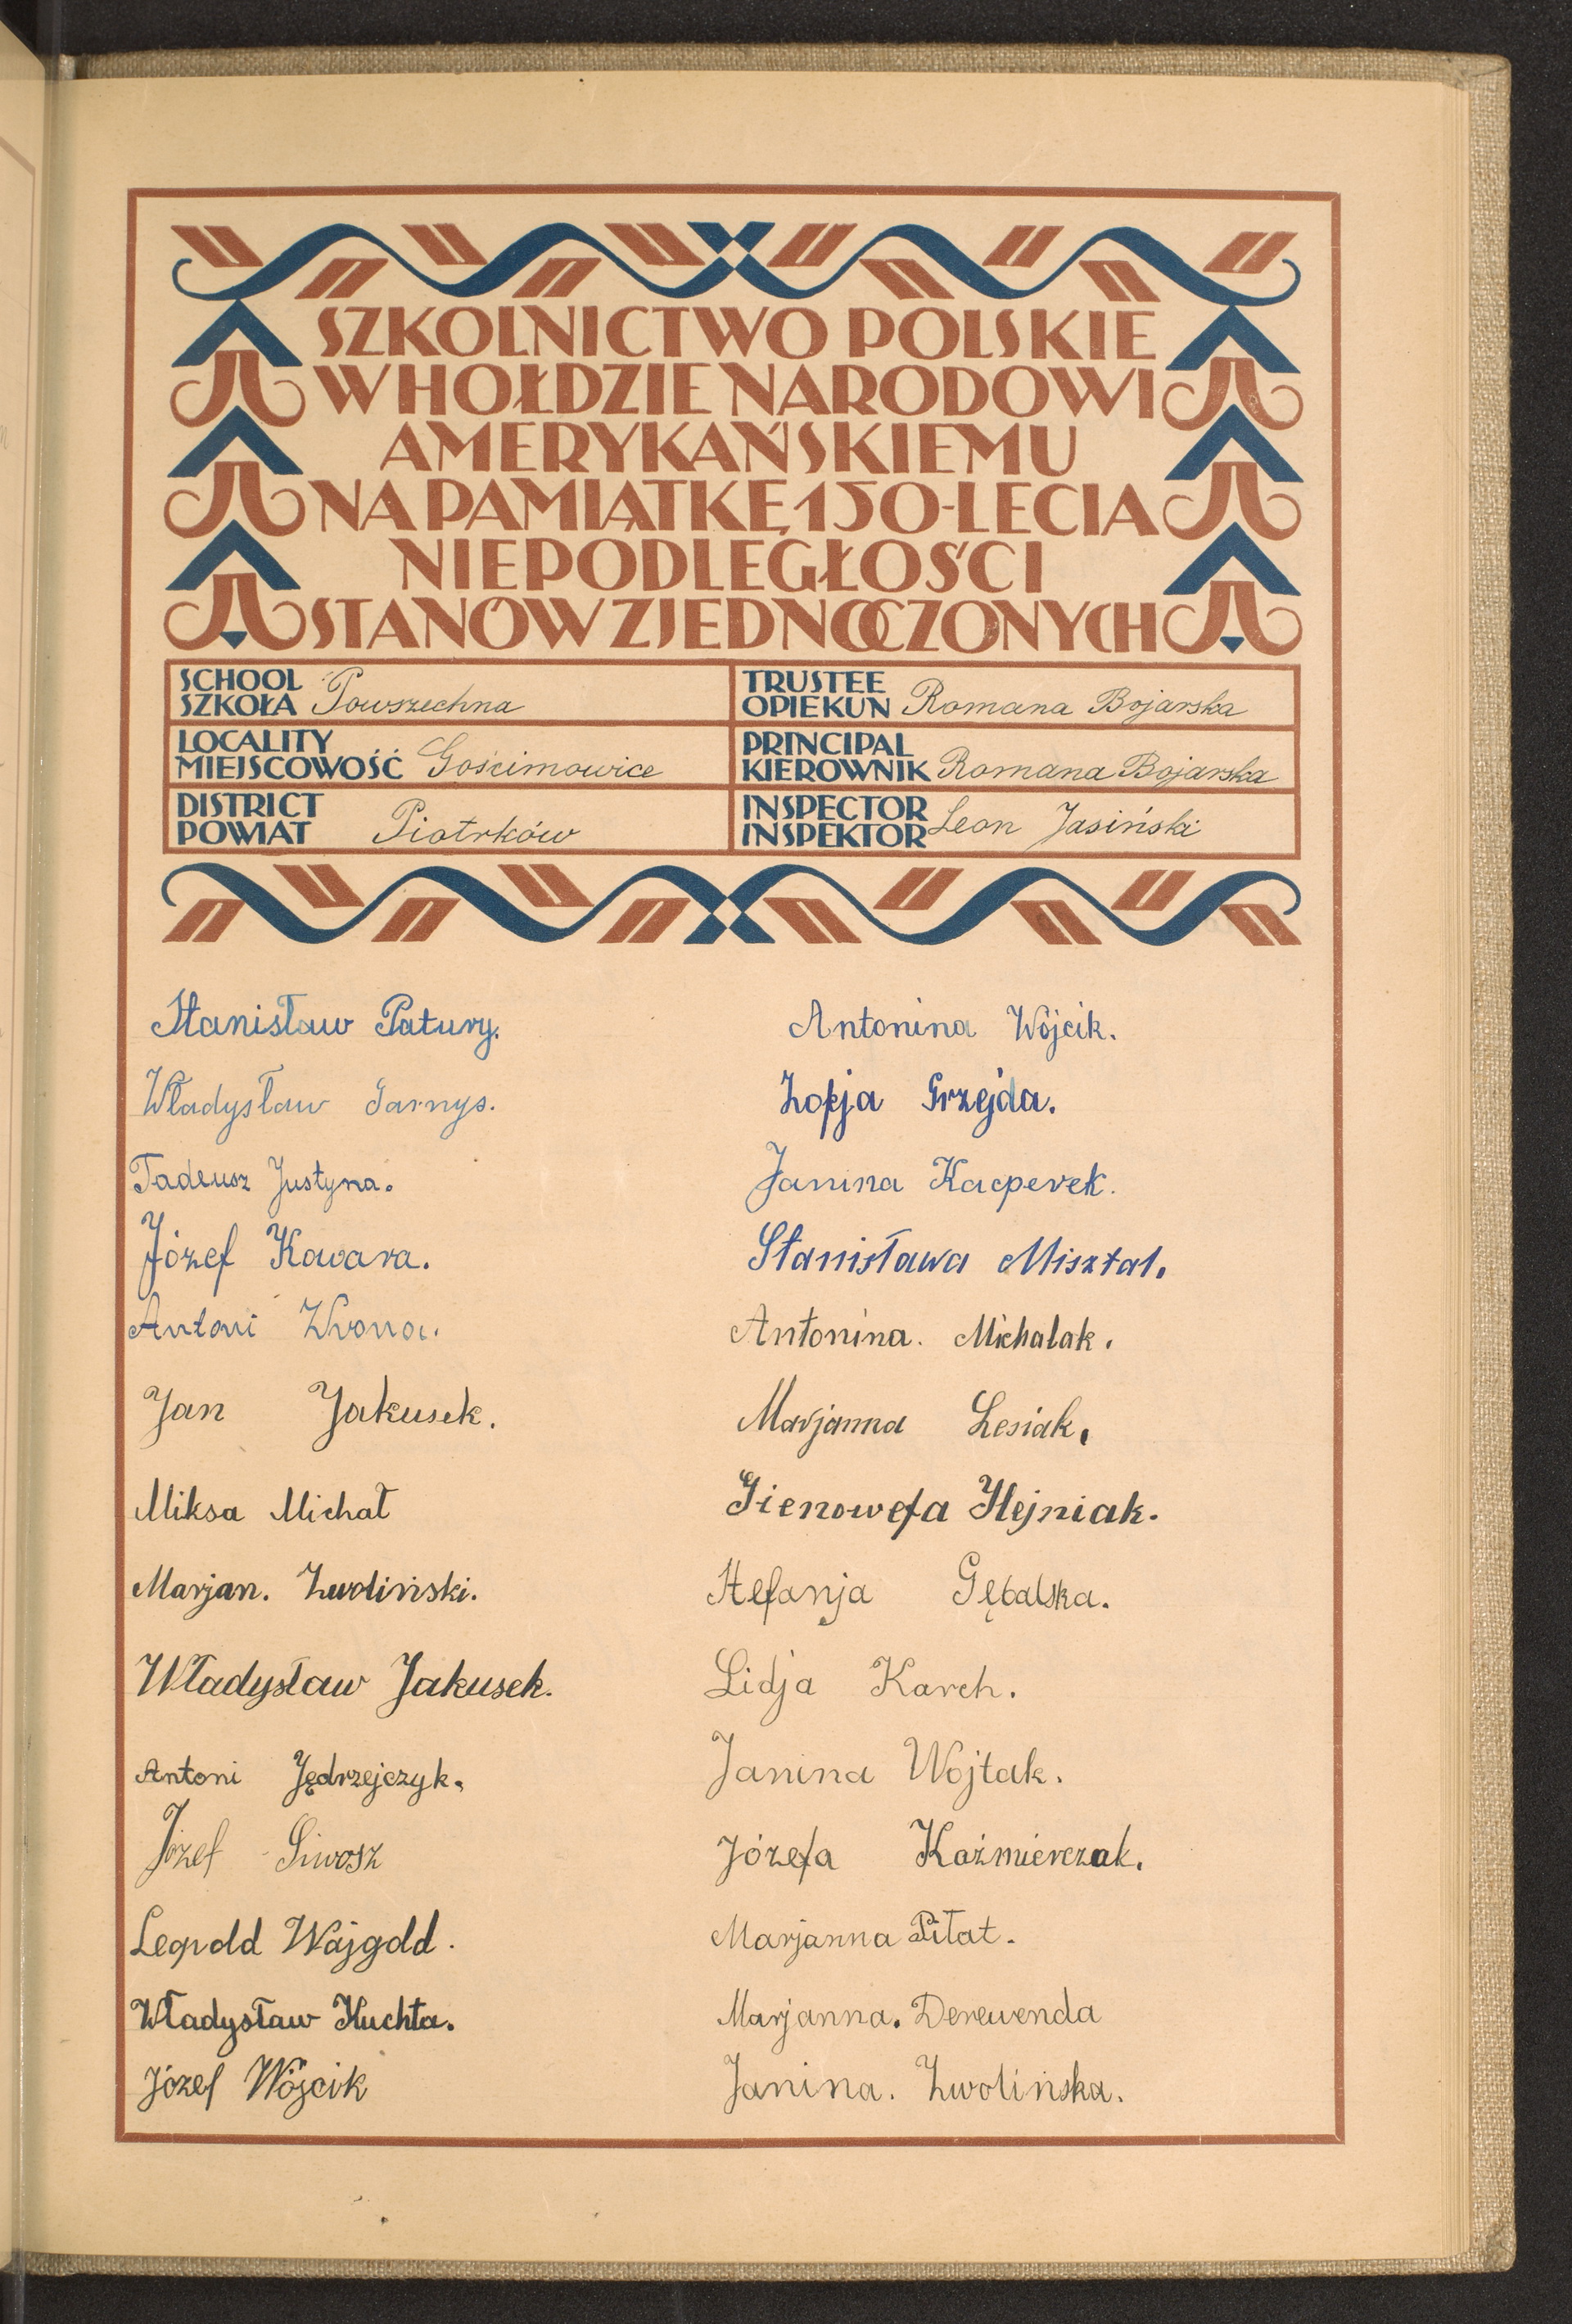 SZKOLNICTWO POLSKIE
W HOŁDZIE NARODOWI
AMERYKAŃSKIEMU
NA PAMIĄTKĘ 150-LECIA
NIEPODLEGŁOŚCI
STANÓW ZJEDNOCZONYCH
SCHOOL
SZKOŁA Powszechna
TRUSTEE
OPIEKUN Romana Bojarska
LOCALITY
MIEJSCOWOŚĆ Gościmowice
PRINCIPAL
KIEROWNIK Romana Bojarska
DISTRICT
POWIAT Piotrków
INSPECTOR
INSPEKTOR Leon Jasiński
Stanisław Patury.
Władysław Garnys.
Tadeusz Justyna.
Józef Kawara.
Antoni
Jan Jakusek.
Miksa Michał
Marjan. Zwoliński.
Władysław Jakusek.
Antoni Jędrzejczyk.
Józef Siwosz
Leopold Wajgold.
Władysław Kuchta.
Józef Wójcik
Antonina Wójcik.
Zofja Grzejda.
Janina Kacperek.
Stanisława Misztal.
Antonina. Michalak.
Marjanna Lesiak.
Gienowefa Klejniak.
Stefanja Gębalska.
Lidja Karch.
Janina Wojtak.
Józefa Kaźmierczak.
Marjanna Piłat.
Marjanna. Derewenda
Janina. Zwolińska.